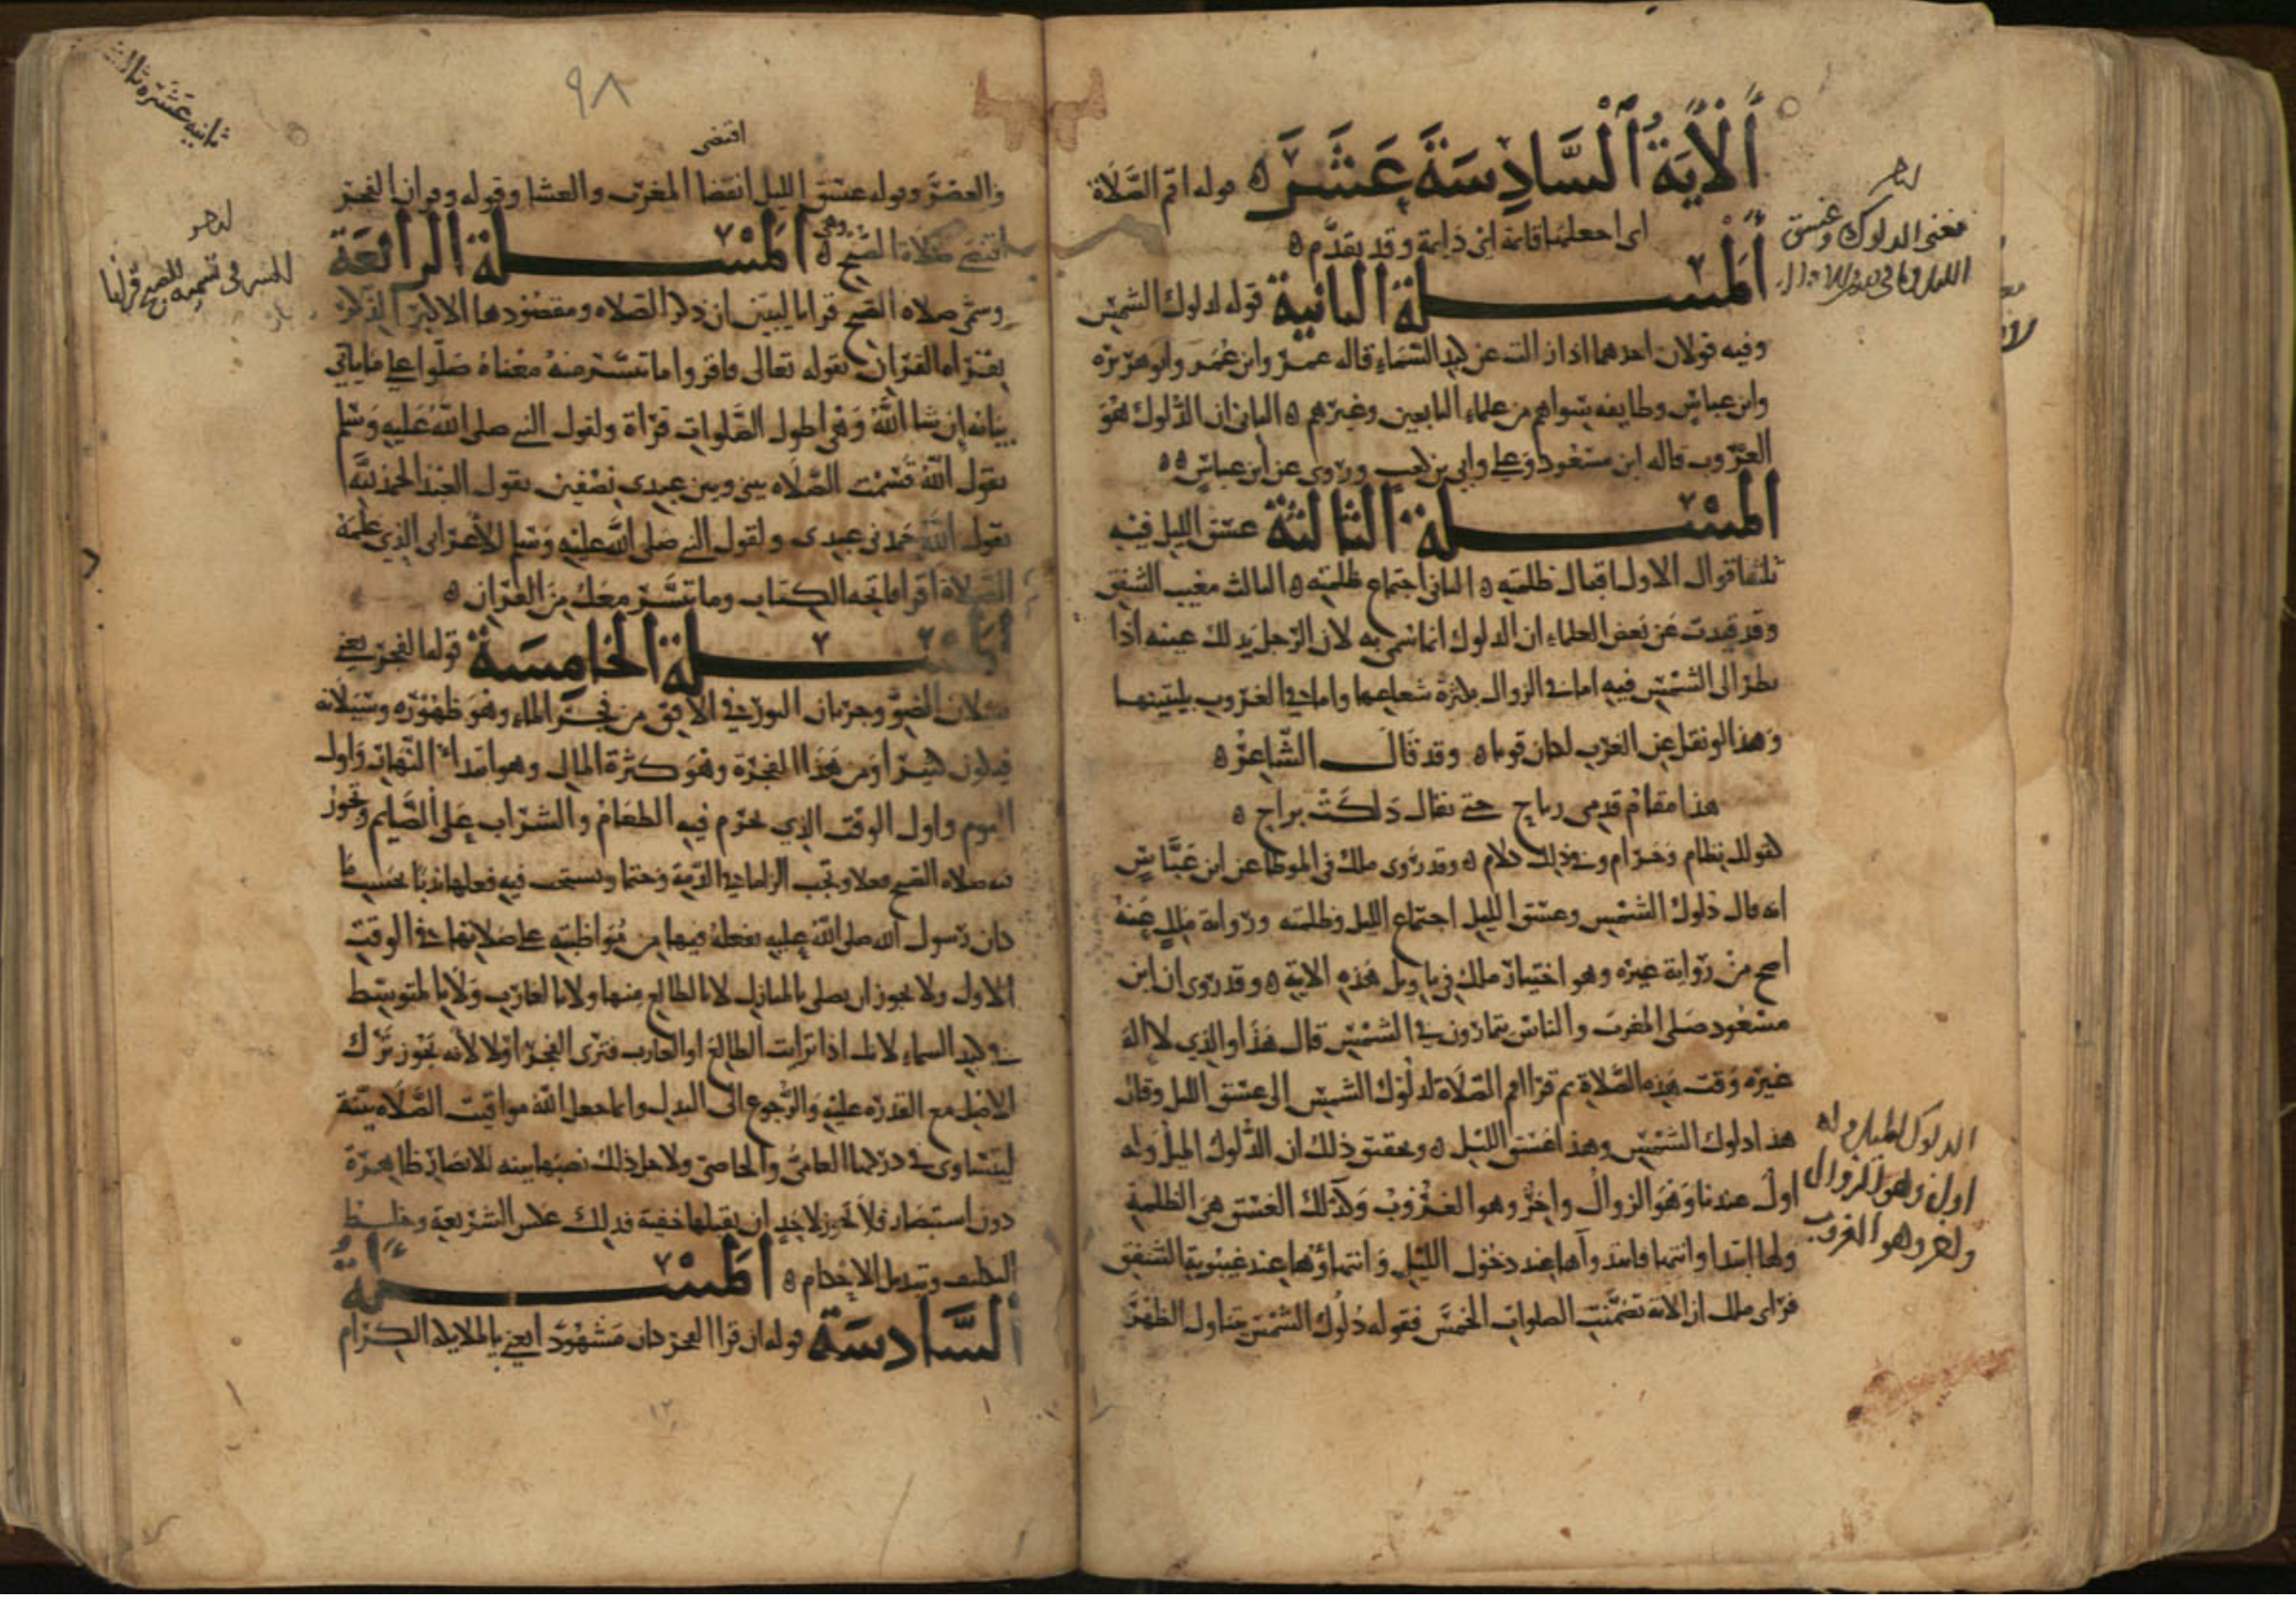 الآية السادسة عشر ه قوله اقم الصلاة
اى اجعلها قايمة اى دايمة وقد تقدم ه
المسلة الثانية قوله لدلوك الشمس
وفيه قولان احدهما اذا زالت عن كبد السماء قاله عمر وابن عمر وابو هريرة
وابن عباس وطايفة سواهم من علماء التابعين وغيرهم ه الثانى ان الدلوك هو
الغروب قاله ابن مسعود وعلى وابى بن كعب وروى عن ابن عباس ه ه
المسلة الثالثة غسق الليل فيه
ثلثة اقوال الاول اقبال ظلمته ه الثانى اجتماع ظلمته ه الثالث مغيب الشفق
وقد قيدت عن بعض العلماء ان الدلوك انما سمى به لان الرجل يدلك عينه اذا
نظر الى الشمس فيه اما فى الزوال بكثرة شعاعها واما فى الغروب ليتبينها
وهذا لو نقل عن العرب لكان قويا ه وقد قال الشاعر ه
هذا مقام قدمى رباح حتى يقال دلكت براح ه
كقولك نظام وحرام وفى ذلك كلام ه وقد روى ملك فى الموطا عن ابن عباس
انه قال دلوك الشمس وغسق الليل اجتماع الليل وظلمته ورواية ملك عنه
اصح من رواية غيره وهو اختيار ملك فى تاويل هذه الاية ه وقد روى ان ابن
مسعود صلى المغرب والناس يتمارون فى الشمس قال هذا والذي لا اله
غيره وقت هذه الصلاة ثم قرا اقم الصلاة لدلوك الشمس الى غسق الليل وقال
هذا دلوك الشمس وهذا غسق الليل ه وتحقيق ذلك ان الدلوك الميل وله
اول عندنا وهو الزوال واخر وهو الغروب وكذلك الغسق هى الظلمة
ولها ابتدا وانتها فابتداها عند دخول الليل وانتهاؤها عند غيبوبة الشفق
فراى ملك ان الاية تضمنت الصلوات الخمس فقوله دلوك الشمس يتناول الظهر
فمعنى الدلوك وغسق
الدلوك الميل وله
اول وهو الزوال
واخر وهو الغروب
٩٨
ثانيه عشره ثالث
اقتضى
والعصر وقوله غسق الليل اقتضا المغرب والعشا وقوله وقران الفجر
اقتضى صلاة الصبح ه وهى المسلة الرابعة
وسمى صلاه الصبح قرانا ليبين ان ذكر الصلاه ومقصودها الاكبر الذكر
بقراه القران بقوله تعالى فاقروا ما تيسر منه معناه صلوا على ما ياتى
بيانه ان شا الله وهى اطول الصلوات قراة ولقول النبى صلى الله عليه وسلم
يقول الله قسمت الصلاه بينى وبين عبدى نصفين يقول العبد الحمد لله
يقول الله حمدنى عبدى ولقول النبى صلى الله عليه وسلم للاعرابى الذى علمه
الصلاة اقرا فاتحة الكتاب وما تيسر معك من القران ه
المسلة الخامسة قوله الفجر يعنى
سيلان الضو وجريان النور فى الافق من فجر الماء وهو ظهوره وسيلانه
فيكون كثيرا ومن هذا الفجرة وهو كثرة المال وهو ابتداء النهار واول
اليوم واول الوقت الذي يحرم فيه الطعام والشراب على الصايم وتجوز
فيه صلاه الصبح فعلا وتجب الزاما فى الذمة وحتما ويستحب فيه فعلها ندبا بحسب ما
كان رسول الله صلى الله عليه يفعله فيها من مواظبته على صلاتها فى الوقت
الاول ولا يجوز ان يصلى بالمنازل لا بالطالع منها ولا بالغارب ولا بالمتوسط
فى كبد السماء لانك اذا ترايت الطالع او الغارب فترى الفجر اولا لانه يجوز ترك
الاصل مع القدره عليه والرجوع الى البدل وانما جعل الله مواقيت الصلاه بينة
ليتساوى فى دركها العامى والخاصى ولاجل ذلك نصبها بينه للابصار ظاهرة
دون استبصار فلا يجوز لاحد ان يقبلها خفية فذلك عكس الشريعة وخلط
التكليف وتبديل الاحكام ه المسلة
السادسة قوله ان قرا الفجر كان مشهودا يعنى بالملايكه الكرام